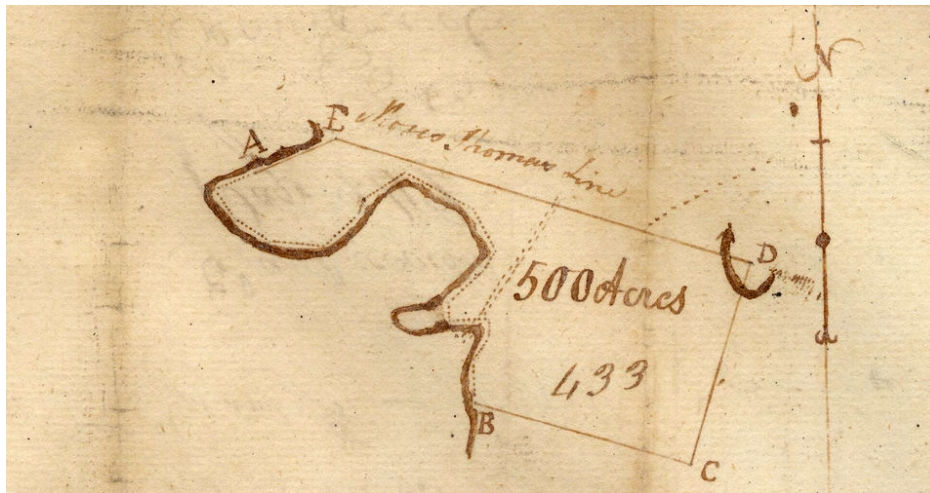 N
A
E
Moses Thomas Line
D
500 Acres
433
B
C